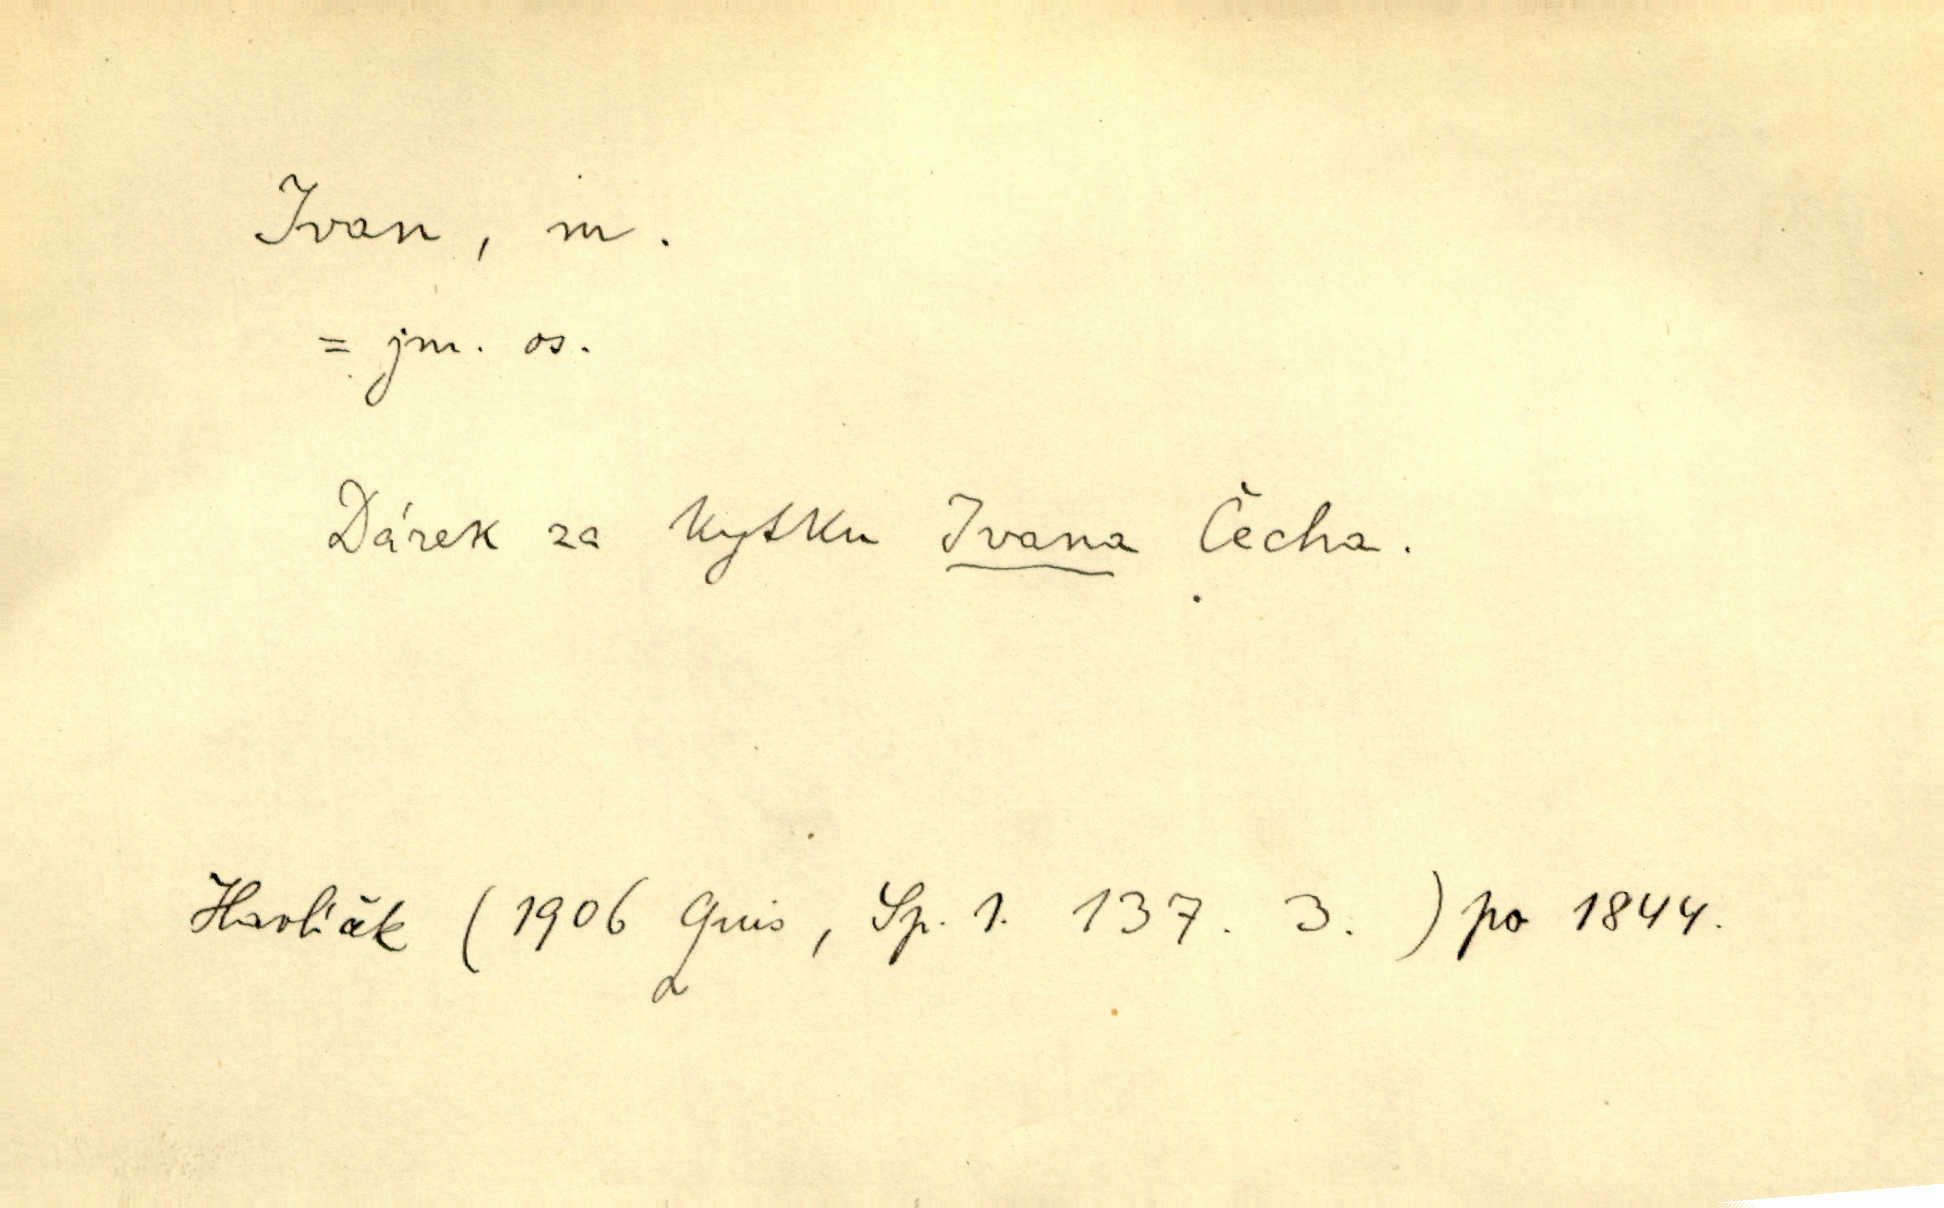 Ivan, m.
= jm. os.
Dárek za kytku Ivana Čecha.
Havlíček (1906 Quis, Sp. 1. 137. 3.) po 1844.